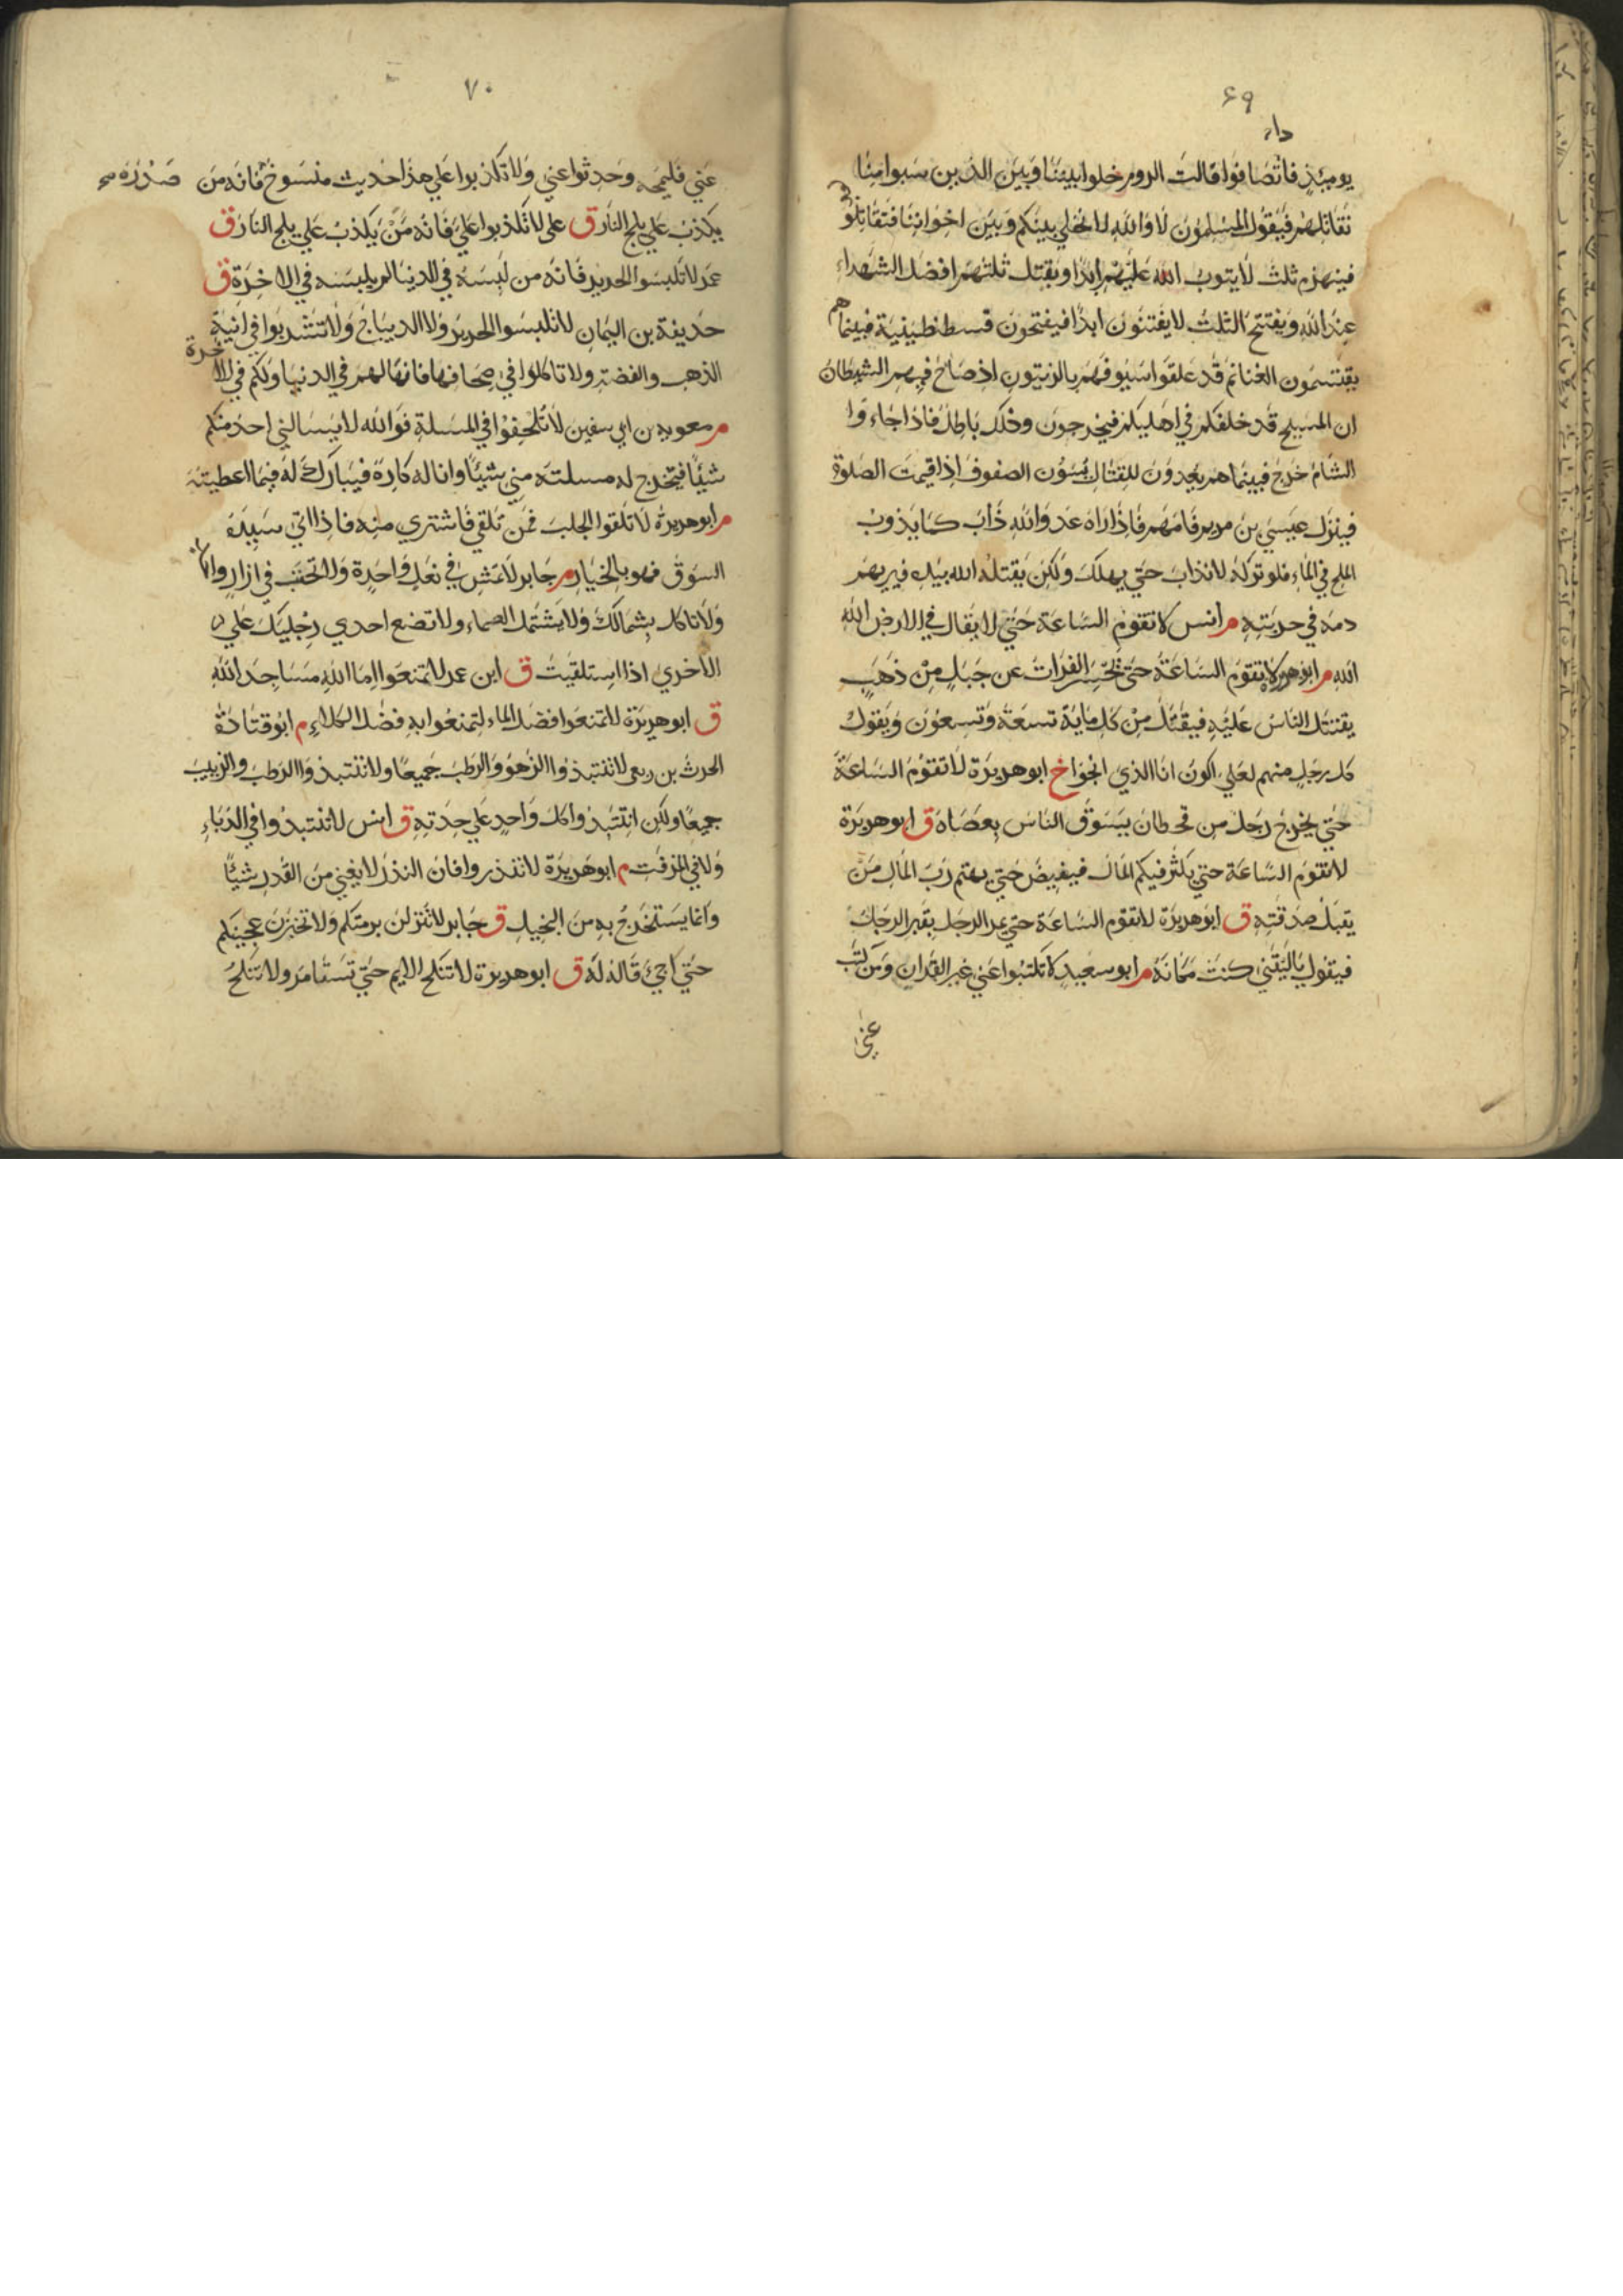 ۶۹
يوميذٍ فاتصافوا قالت الروم خلوا بيننا وبين الذين سبوا منا
نقاتلهم فيقول المسلمون لا والله لا نخلي بينكم وبين اخواننا فتقاتلو
فينهزم ثلث لا يتوب الله عليهم ابدا ويقتل ثلثهم افضل الشهداء
عند الله ويفتتح الثلث لا يفتنون ابدا فيفتحون قسطنطينية فبينما هم
يقتسمون الغنائم قد علقوا سيوفهم بالزيتون اذ صاح فيهم الشيطان
ان المسيح قد خلفكم في اهليكم فيخرجون وذلك باطل فاذا جاءوا
الشام خرج فبينما هم يعدون للقتال يسوون الصفوف اذ اقيمت الصلوة
فينزل عيسي بن مريم فامهم فاذا راه عدو الله ذاب كما يذوب
الملح في الماء فلو تركه لانذاب حتي يهلك ولكن يقتله الله بيده فيريهم
دمه في حربته م انس لا تقوم الساعة حتي لا يقال في الارض الله
الله م ابو هريرة لا تقوم الساعة حتي تحسر الفرات عن جبل من ذهب
يقتتل الناس عليه فيقتل من كل ماية تسعة وتسعون ويقول
كل رجل منهم لعلي اكون انا الذي انجوا خ ابو هريرة لا تقوم الساعة
حتي يخرج رجل من قحطان يسوق الناس بعصاه ق ابو هريرة
لا تقوم الساعة حتي يكثر فيكم المال فيفيض حتي يهتم رب المال من
يقبل صدقته ق ابو هريرة لا تقوم الساعة حتي يمر الرجل بقبر الرجل
فيقول يا ليتني كنت مكانه م ابو سعيد لا تكتبوا عني غير القران ومن كتب
عني
۷۰
عني فليمحه وحدثوا عني ولا تكذبوا علي هذا حديث منسوخ فانه من
يكذب علي يلج النار ق علي لا تكذبوا علي فانه من يكذب علي يلج النار ق
عمر لا تلبسوا الحرير فانه من لبسه في الدنيا لم يلبسه في الاخرة ق
حذيفة بن اليمان لا تلبسوا الحرير ولا الديباج ولا تشربوا في انية
الذهب والفضة ولا تاكلوا في صحافها فانها لهم في الدنيا ولكم في الاخرة
م معوية بن ابي سفين لا تلحفوا في المسلة فوالله لا يسالني احد منكم
شيئا فتخرج له مسلته مني شيئا وانا له كاره فيبارك له فيما اعطيته
م ابو هريرة لا تلقوا الجلب فمن تلقي فاشتري منه فاذا اتي سيده
السوق فهو بالخيار م جابر لا تمش في نعل واحدة ولا تحتب في ازار واحد
ولا تاكل بشمالك ولا يشتمل الصماء ولا تضع احدي رجليك علي
الاخري اذا استلقيت ق ابن عمر لا تمنعوا اما الله مساجد الله
ق ابو هريرة لا تمنعوا فضل الماء لتمنعوا به فضل الكلاء م ابو قتادة
الحرث بن ربعي لا تنتبذوا الزهو والرطب جميعا ولا تنتبذوا الرطب والزبيب
جميعا ولكن انتبذوا كل واحد علي حدته ق انس لا تنتبذوا في الدباء
ولا في المزفت م ابو هريرة لا تنذروا فان النذر لا يغني من القدر شيئا
وانما يستخرج به من البخيل ق جابر لا تنزلن برمتكم ولا تخبزن عجينكم
حتي اجئ قاله له ق ابو هريرة لا تنكح الايم حتي تستامر ولا تنكح